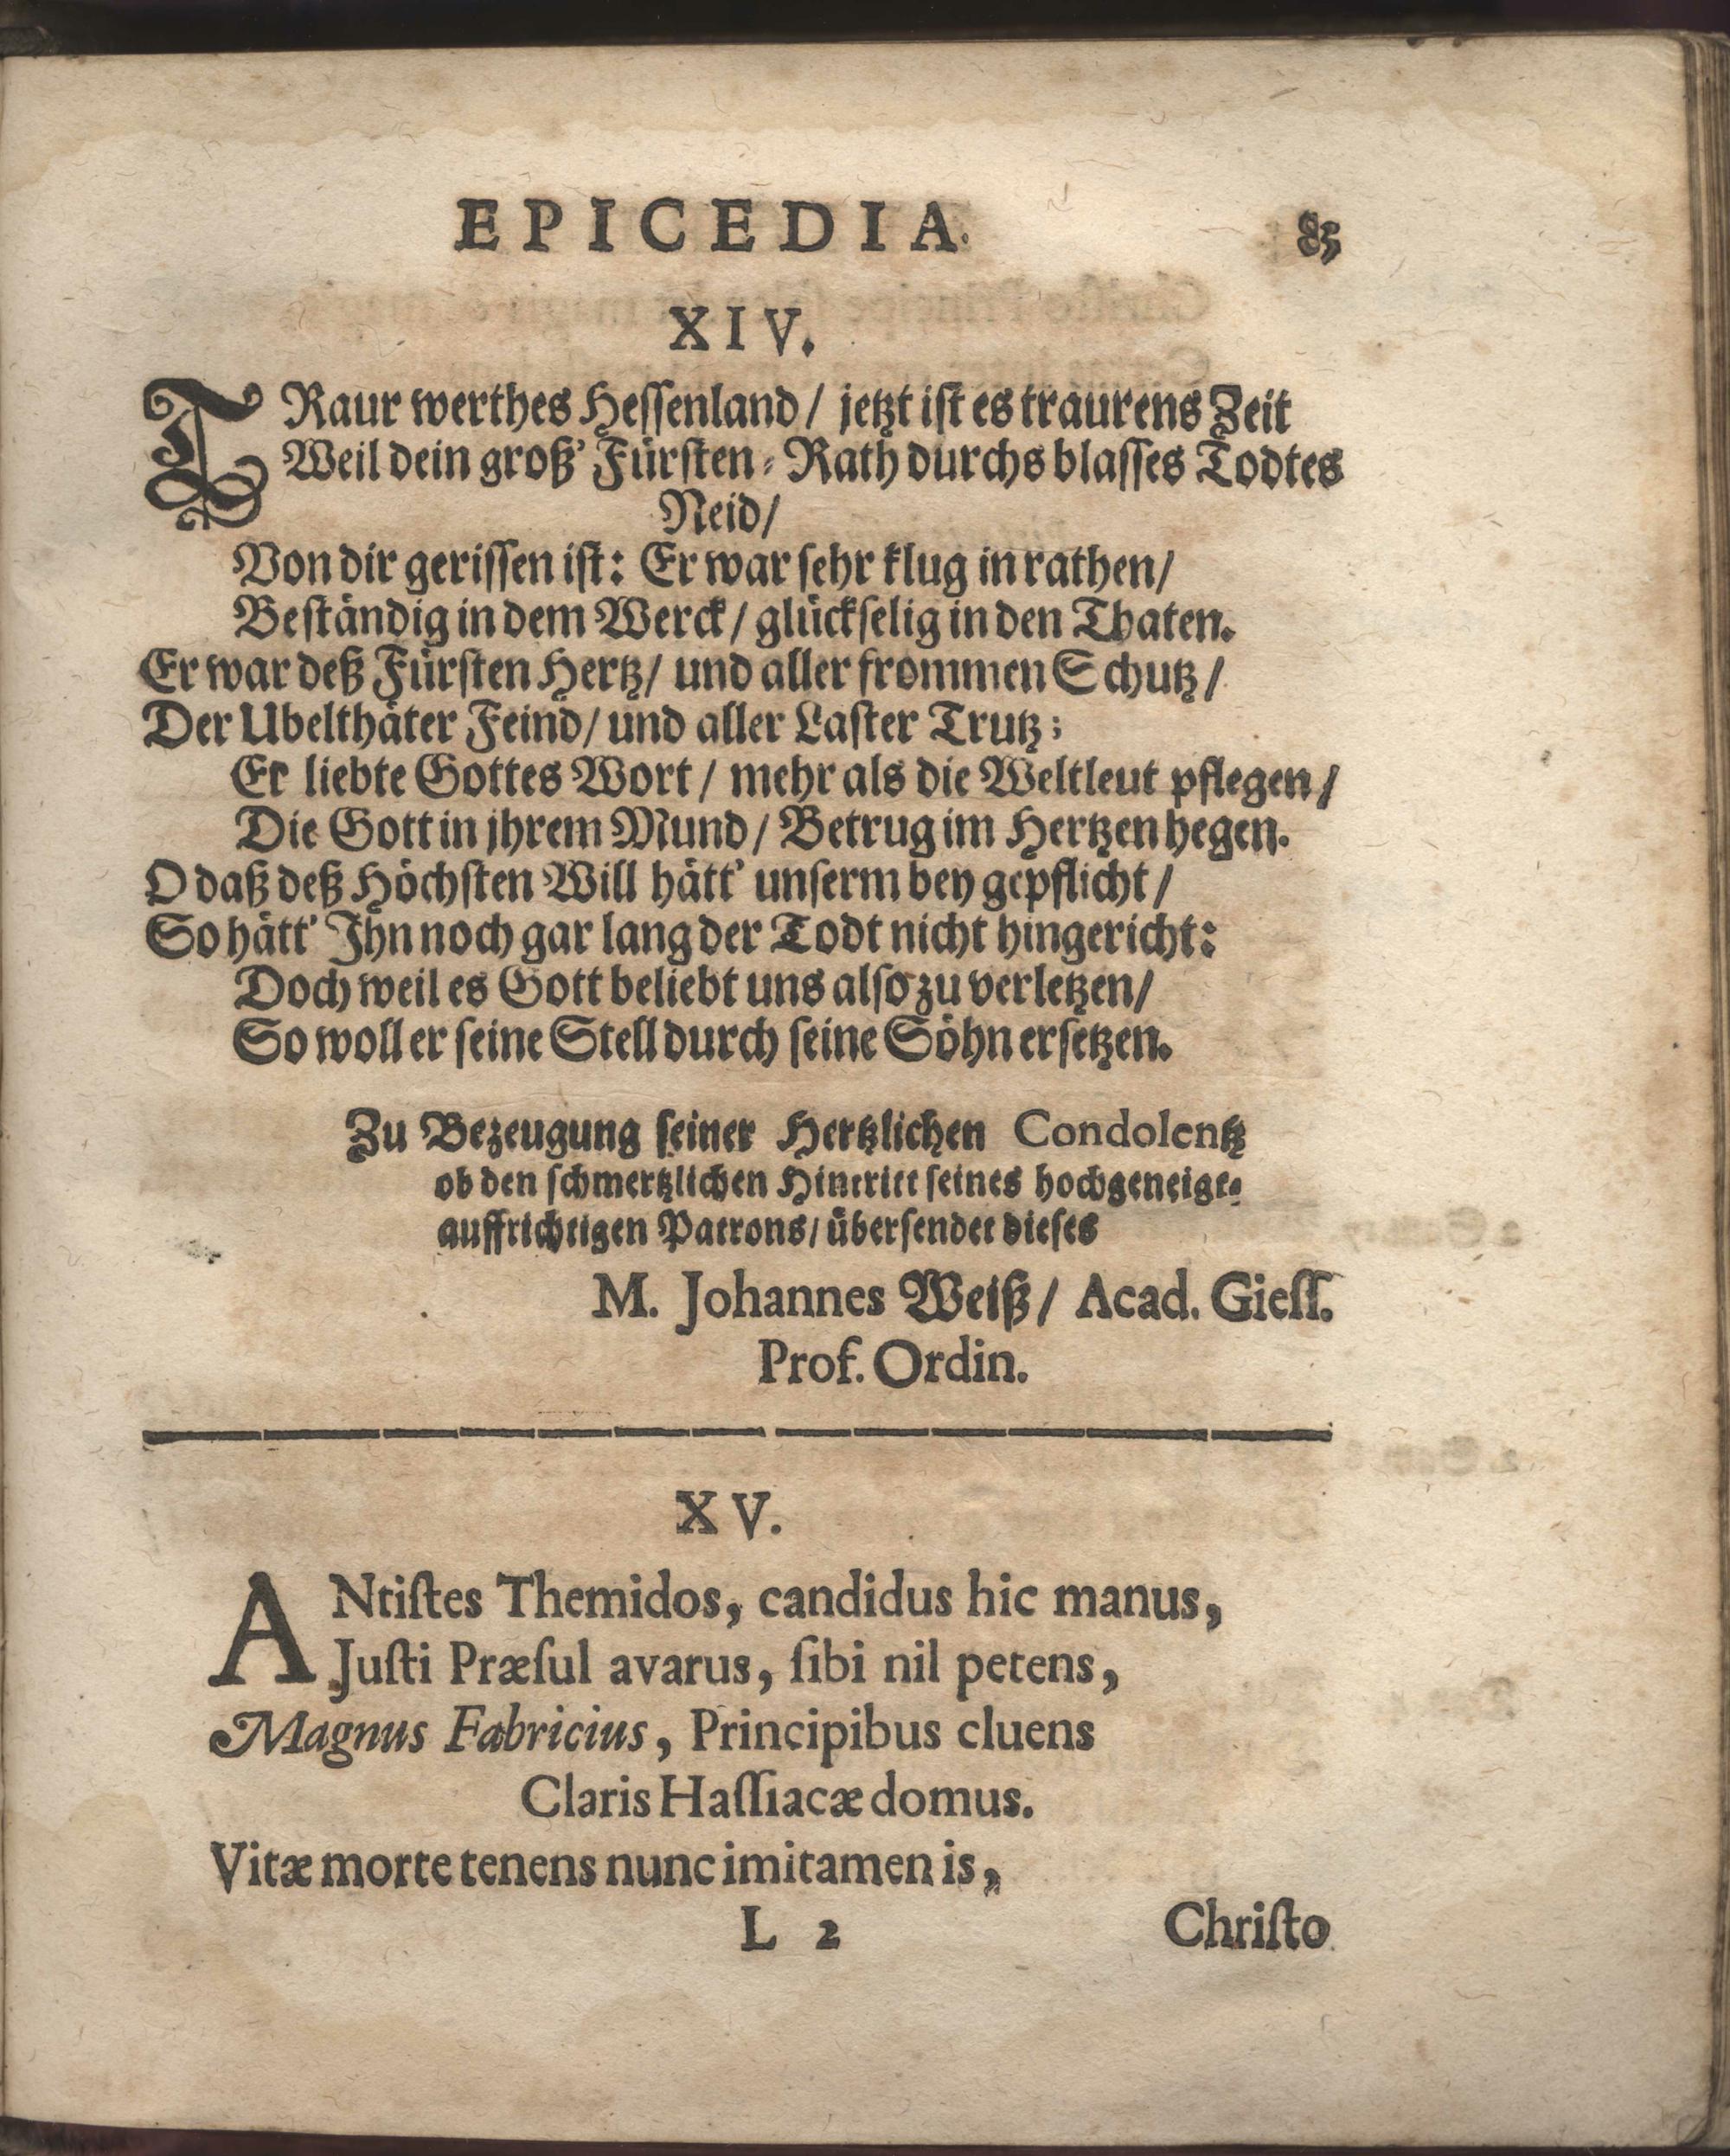 EPICEDIA. 85
XIV.
TRaur werthes Hessenland / jetzt ist es traurens Zeit
Weil dein groß' Fürsten-Rath durchs blasses Todtes
Neid /
Von dir gerissen ist: Er war sehr klug in rathen /
Beständig in dem Werck / glückselig in den Thaten.
Er war deß Fürsten Hertz / und aller frommen Schutz /
Der Ubelthäter Feind / und aller Laster Trutz;
Er liebte Gottes Wort / mehr als die Weltleut pflegen /
Die Gott in jhrem Mund / Betrug im Hertzen hegen.
O daß deß Höchsten Will hätt' unserm bey gepflicht /
So hätt' Jhn noch gar lang der Todt nicht hingericht:
Doch weil es Gott beliebt uns also zu verletzen /
So woll er seine Stell durch seine Söhn ersetzen.
Zu Bezeugung seiner Hertzlichen Condolentz
ob den schmertzlichen Hintritt seines hochgeneigt-
auffrichtigen Patrons / übersendet dieses
M. Johannes Weiß / Acad. Gieſſ.
Prof. Ordin.
XV.
ANtiſtes Themidos, candidus hic manus,
Juſti Præſul avarus, ſibi nil petens,
Magnus Fabricius, Principibus cluens
Claris Haſſiacæ domus.
Vitæ morte tenens nunc imitamen is,
L 2 Chriſto